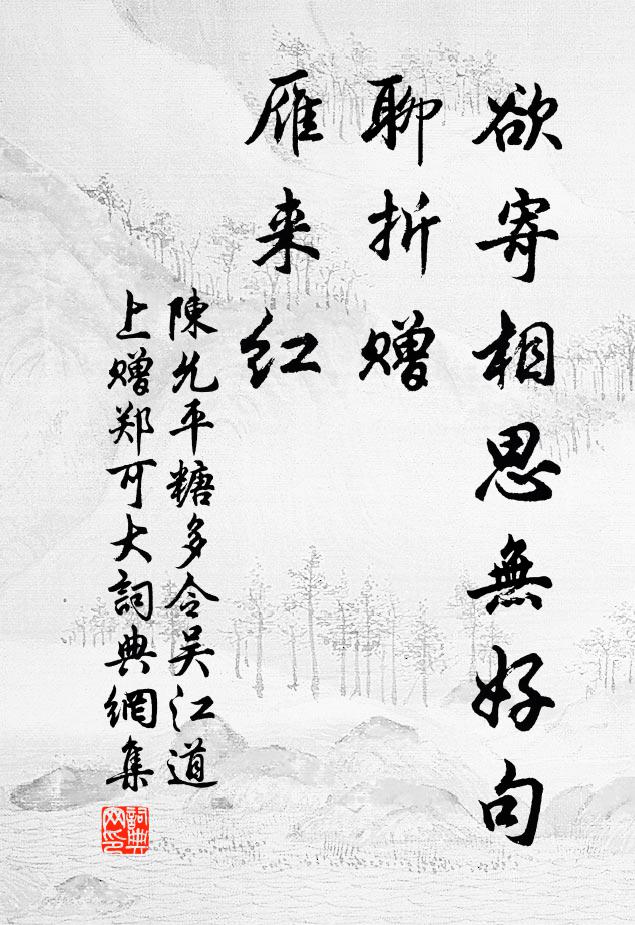 欲寄相思無好句
聊折赠
雁来红
陳允平糖多令吴江道
上赠郑可大詞典網集
詞典
网印